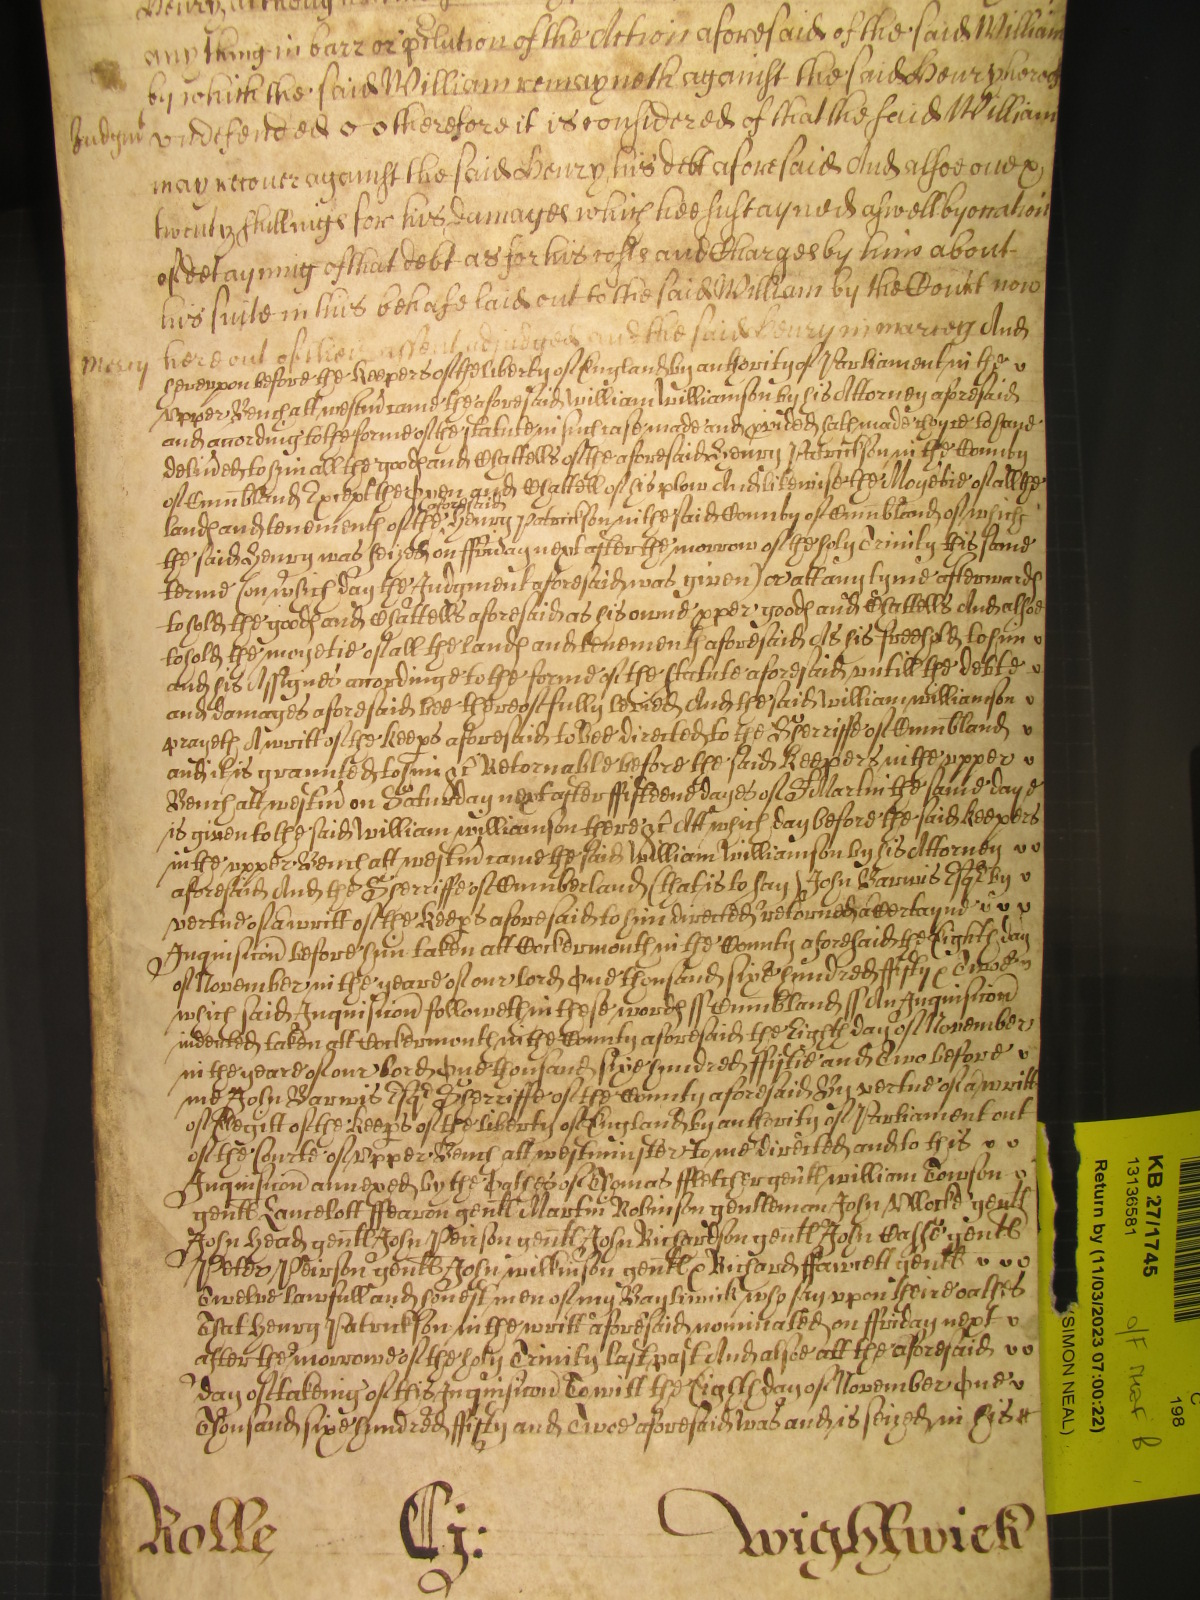 any thing in barr or pclution of the Action aforesaid of the said William
by which the said William remayneth against the said Henry
Judgmt undefended &c therefore it is considered of that the said William
may recover against the said Henry his debt aforesaid And alsoe
twenty shillings for his damages which hee sustayned aswell by occasion
of detayning of that debt as for his costs and Charges by him about
his suite in this behafe laid out to the said William by the Court now
mercy here out of their assent adjudged and the said Henry in marcey And
hereupon before the Keepers of the liberty of England by authority of Parliament in the
upper Bench att westmr came the aforesaid William Williamson by his Attorney aforesaid
and according to the forme of the statute in such case made and pvided hath made choyce to have
delivered to him all the goods and Chattells of the aforesaid Henry Patrickson in the County
of Cumbland Except the Oxen and Chattell of his plow And likewise the Moyetie of all the
lands and tenements of the aforesaid Henry Patrickson in the said County of Cumbland of which
the said Henry was seized on ffriday next after the morrow of the holy Trinity this same
terme (on which day the Judgment aforesaid was given) or att any tyme afterwards
to hold the goods and Chattells aforesaid as his owne pper goods and Chattells And alsoe
to hold the moyetie of all the lands and tenements aforesaid As his freehold to him
and his Assignes according to the forme of the statute aforesaid untill the debte
and damages aforesaid bee thereof fully levied And the said William Williamson
prayeth A writt of the Keeps aforesaid to bee directed to the Sherriffe of Cumbland
and it is graunted to him &c Retornable before the said Keepers in the upper
Bench att westmr on Saturday next after ffifteene dayes of St Martin the same daye
is given to the said William Williamson there &c Att which day before the said Keepers
in the upper Bench att westmr came the said William Williamson by his Attorney
aforesaid And the Sherriffe of Cumberland (that is to say) John Barwis Esqr by
vertue of a writt of the Keeps aforesaid to him directed retorned a Certayne
Inquisicon before him taken att Cockermouth in the County aforesaid the Eighth day
of November in the yeare of our lord One thousand sixe hundred ffifty & Twoe
which said Inquisicon followeth in these words ss Cumbland ss An Inquisicon
indented taken att Cockermouth in the County aforesaid the Eighth day of November
in the yeare of our Lord One thousand sixe hundred ffiftie and Two before
me John Barwis Esqr Sherriffe of the County aforesaid By vertue of a writt
of Elegitt of the Keeps of the liberty of England by authority of Parliament out
of the Courte of Upper Bench att westminster to me directed and to this
Inquisicon annexed by the Oathes of Thomas ffletcher gentl William Towson
gentl Lancelott ffearon gentl Martin Robinson gentleman John gentl
John Head gentl John Peirson gentl John Richardson gentl John gentl
Peter Peirson gentl John Wilkinson gentl & Richard ffawcett gentl
Twelve lawfull and honest men of my Bayliwick who say upon theire oathes
That Henry Patrickson in the writt aforesaid nominated on ffriday next
after the morrowe of the holy Trinity last past And alsoe att the aforesaid
day of takeing of this Inquisicon To witt the Eighth day of November One
Thousand sixe hundred ffifty and Twoe aforesaid was and is seized in his
Rolle Cj: Wightwick
KB 27/1745
13136581
Return by (11/03/2023 07:00:22)
(SIMON NEAL)
198